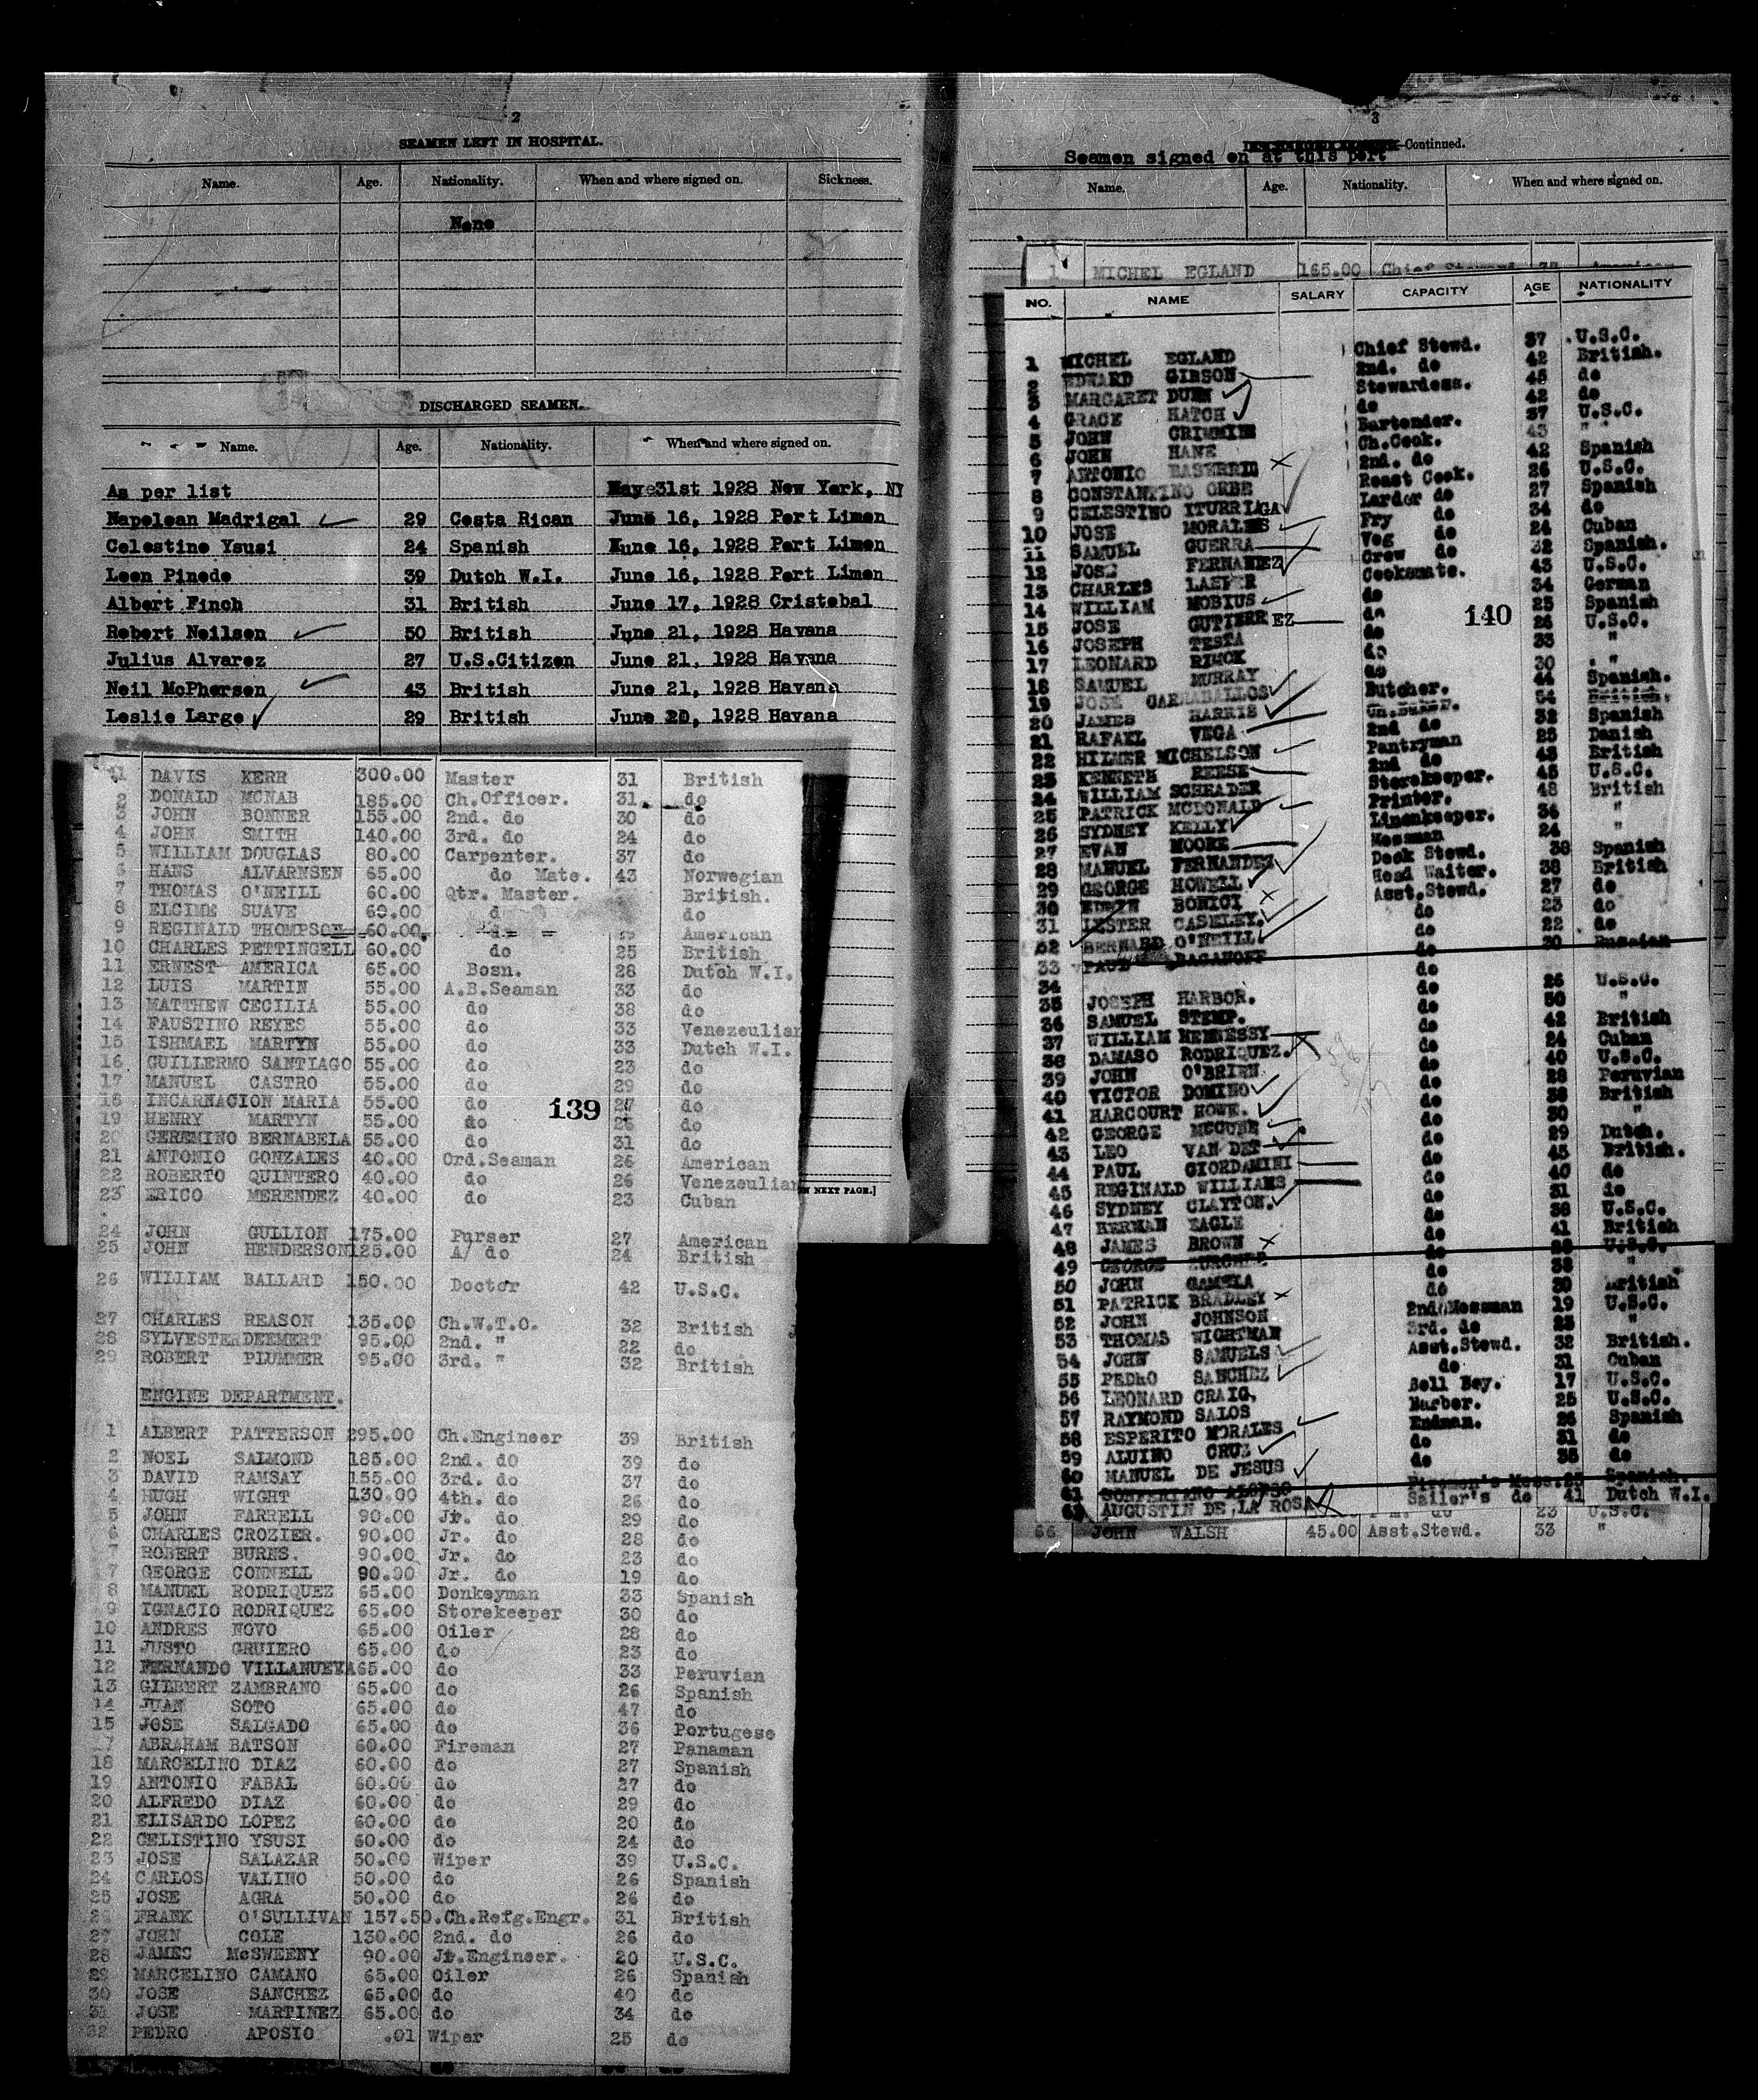 2
SEAMEN LEFT IN HOSPITAL.
Name. Age. Nationality. When and where signed on. Sickness.
None
DISCHARGED SEAMEN.
Name. Age. Nationality. When and where signed on.
As per list 31st 1928 New York, NY
Napolean Madrigal 29 Costa Rican June 16, 1928 Port Limon
Celestino Ysusi 24 Spanish June 16, 1928 Port Limon
Leon Pinedo 39 Dutch W.I. June 16, 1928 Port Limon
Albert Finch 31 British June 17, 1928 Cristobal
Robert Neilsen 50 British June 21, 1928 Havana
Julius Alvarez 27 U.S.Citizen June 21, 1928 Havana
Neil McPhersen 43 British June 21, 1928 Havana
Leslie Large 29 British June 20, 1928 Havana
1 DAVIS KERR 300.00 Master 31 British
2 DONALD MCNAB 185.00 Ch.Officer. 31 do
3 JOHN BONNER 155.00 2nd. do 30 do
4 JOHN SMITH 140.00 3rd. do 24 do
5 WILLIAM DOUGLAS 80.00 Carpenter. 37 do
6 HANS ALVARNSEN 65.00 do Mate. 43 Norwegian
7 THOMAS O'NEILL 60.00 Qtr. Master. British.
8 ELCIME SUAVE 60.00 d do
9 REGINALD THOMPSON 60.00 American
10 CHARLES PETTINGELL 60.00 do 25 British
11 ERNEST AMERICA 65.00 Bosn. 28 Dutch W.I.
12 LUIS MARTIN 55.00 A.B.Seaman 33 do
13 MATTHEW CECILIA 55.00 do 38 do
14 FAUSTINO REYES 55.00 do 33 Venezeulian
15 ISHMAEL MARTYN 55.00 do 33 Dutch W.I.
16 GUILLERMO SANTIAGO 55.00 do 23 do
17 MANUEL CASTRO 55.00 do 29 do
18 INCARNACION MARIA 55.00 do 27 do
139
19 HENRY MARTYN 55.00 do 26 do
20 GEREMINO BERNABELA 55.00 do 31 do
21 ANTONIO GONZALES 40.00 Ord.Seaman 26 American
22 ROBERTO QUINTERO 40.00 do 26 Venezeulian
23 ERICO MERENDEZ 40.00 do 23 Cuban
N NEXT PAGE.]
24 JOHN GULLION 175.00 Purser 27 American
25 JOHN HENDERSON 125.00 A/ do 24 British
26 WILLIAM BALLARD 150.00 Doctor 42 U.S.C.
27 CHARLES REASON 135.00 Ch.W.T.O. 32 British
28 SYLVESTER DEEMERT 95.00 2nd. " 22 do
29 ROBERT PLUMMER 95.00 3rd. " 32 British
ENGINE DEPARTMENT.
1 ALBERT PATTERSON 295.00 Ch.Engineer 39 British
2 NOEL SALMOND 185.00 2nd. do 39 do
3 DAVID RAMSAY 155.00 3rd. do 37 do
4 HUGH WIGHT 130.00 4th. do 26 do
5 JOHN FARRELL 90.00 Jr. do 29 do
6 CHARLES CROZIER. 90.00 Jr. do 28 do
7 ROBERT BURNS. 90.00 Jr. do 23 do
7 GEORGE CONNELL 90.00 Jr. do 19 do
8 MANUEL RODRIQUEZ 65.00 Donkeyman 33 Spanish
9 IGNACIO RODRIQUEZ 65.00 Storekeeper 30 do
10 ANDRES NOVO 65.00 Oiler 28 do
11 JUSTO GRUIERO 65.00 do 23 do
12 FERNANDO VILLANUEVA 65.00 do 33 Peruvian
13 GILBERT ZAMBRANO 65.00 do 26 Spanish
14 JUAN SOTO 65.00 do 47 do
15 JOSE SALGADO 65.00 do 36 Portugese
17 ABRAHAM BATSON 60.00 Fireman 27 Panaman
18 MARCELINO DIAZ 60.00 do 27 Spanish
19 ANTONIO FABAL 60.00 do 27 do
20 ALFREDO DIAZ 60.00 do 29 do
21 ELISARDO LOPEZ 60.00 do 20 do
22 CELISTINO YSUSI 60.00 do 24 do
23 JOSE SALAZAR 50.00 Wiper 39 U.S.C.
24 CARLOS VALINO 50.00 do 26 Spanish
25 JOSE AGRA 50.00 do 26 do
26 FRANK O'SULLIVAN 157.50 Ch.Refg.Engr. 31 British
27 JOHN COLE 130.00 2nd. do 26 do
28 JAMES McSWEENY 90.00 Jr.Engineer. 20 U.S.C.
29 MARCELINO CAMANO 65.00 Oiler 26 Spanish
30 JOSE SANCHEZ 65.00 do 40 do
31 JOSE MARTINEZ 65.00 do 34 do
32 PEDRO APOSIO .01 Wiper 25 do
3
Seamen signed on at this port —Continued.
Name. Age. Nationality. When and where signed on.
1 MICHEL EGLAND 165.00 Chief Steward
NO. NAME SALARY CAPACITY AGE NATIONALITY
1 MICHEL EGLAND Chief Stewd. 37 U.S.C.
2 EDWARD GIBSON 2nd. do 42 British.
3 MARGARET DUNN Stewardess. 45 do
4 GRACE HATCH do 42 do
5 JOHN CRIMMINS Bartender. 37 U.S.C.
6 JOHN HANE Ch.Cook. 43 " "
7 ANTONIO 2nd. do 42 Spanish
8 CONSTANTINO ORBE Roast Cook. 26 U.S.C.
9 CELESTINO ITURRIAGA Larder do 27 Spanish
10 JOSE MORALES Fry do 34 do
11 SAMUEL GUERRA Veg do 24 Cuban
12 JOSE FERNANDEZ Crew do 32 Spanish.
13 CHARLES LAEFER Cooksmate. 43 U.S.C.
14 WILLIAM MOBIUS do 34 German
15 JOSE GUTIERREZ do 25 Spanish
140
16 JOSEPH TESTA do 26 U.S.C.
17 LEONARD RINCK do 33 "
18 SAMUEL MURRAY do 30 "
19 JOSE CARRABALLOS Butcher. 44 Spanish.
20 JAMES HARRIS 54 British.
21 RAFAEL VEGA 2nd do 32 Spanish
22 HILMER MICHELSON Pantryman 25 Danish
23 KENNETH REESE 2nd do 43 British
24 WILLIAM SCHRADER Storekeeper. 45 U.S.C.
25 PATRICK MCDONALD Printer. 48 British
26 SYDNEY KELLY Linenkeeper. 36 "
27 EVAN MOORE Messman 24 "
28 MANUEL FERNANDEZ Deck Stewd. 38 Spanish
29 GEORGE HOWELL Head Waiter. 38 British
30 EDWIN BONICI Asst.Stewd. 27 do
31 LESTER CASELEY. do 23 do
32 BERNARD O'NEILL do 22 do
33 PAUL BAGANOFF do 20 Russian
34 do
35 JOSEPH HARBOR. do 26 U.S.C.
36 SAMUEL STEMP. do 50 "
37 WILLIAM HENNESSY do 42 British
38 DAMASO RODRIQUEZ. do 24 Cuban
39 JOHN O'BRIEN do 40 U.S.C.
40 VICTOR DOMINO do 28 Peruvian
41 HARCOURT HOWE. do 38 British
42 GEORGE MCGUNE do 30 "
43 LEO VAN DET do 29 Dutch.
44 PAUL GIORDAMINI do 45 British.
45 REGINALD WILLIAMS do 40 do
46 SYDNEY CLAYTON. do 31 do
47 HERMAN EAGLE do 38 U.S.C.
48 JAMES BROWN do 41 British
49 GEORGE do U.S.C.
50 JOHN GAMELA do 38 "
51 PATRICK BRADLEY do 30 British
52 JOHN JOHNSON 2nd.Messman 19 U.S.C.
53 THOMAS WIGHTMAN 3rd. do 23 "
54 JOHN SAMUELS Asst.Stewd. 32 British.
55 PEDRO SANCHEZ do 31 Cuban
56 LEONARD CRAIG, Bell Boy. 17 U.S.C.
57 RAYMOND SALOS Barber. 25 U.S.C.
58 ESPERITO MORALES Endman. 26 Spanish
59 ALUINO CRUZ do 31 do
60 MANUEL DE JESUS do 35 do
61 Firemen's Mess. Spanish.
AUGUSTIN DE LA ROSA Sailor's do 41 Dutch W.I.
do 23 U.S.C.
66 JOHN WALSH 45.00 Asst.Stewd. 33 "